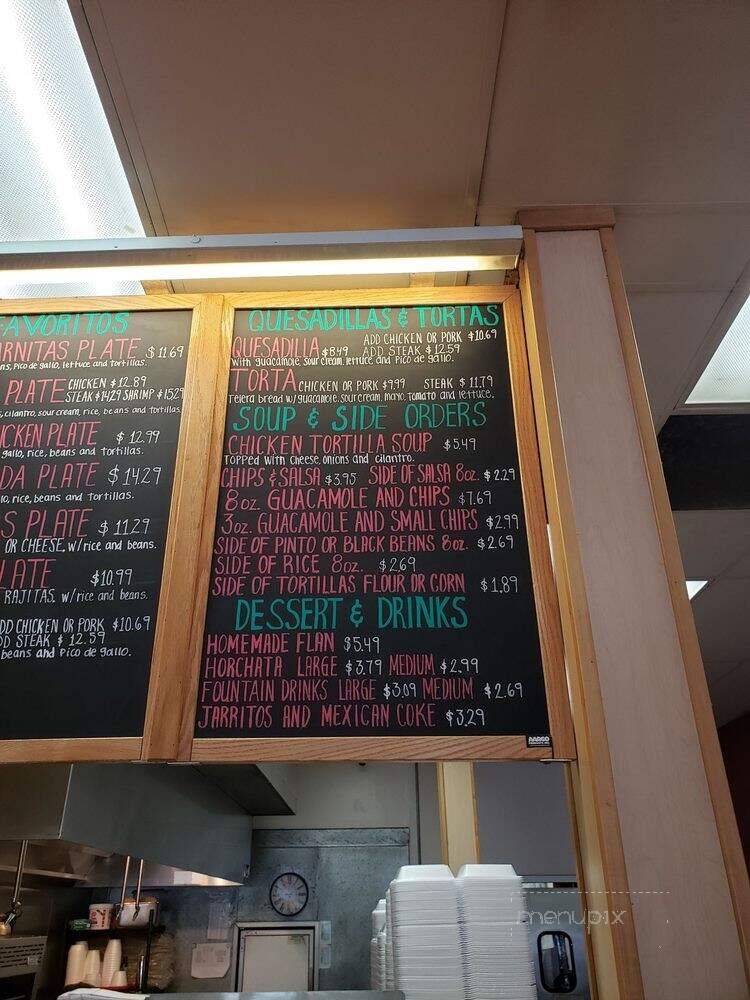 FAVORITOS
RNITAS PLATE $11.69
ns, Pico de gallo, lettuce and tortillas.
PLATE CHICKEN $12.89
STEAK $14.29 SHRIMP $15.29
s, cilantro, sour cream, rice, beans and tortillas.
ICKEN PLATE $12.99
gallo, rice, beans and tortillas.
DA PLATE $14.29
lo, rice, beans and tortillas.
S PLATE $11.29
OR CHEESE. w/rice and beans.
LATE $10.99
RAJITAS. w/rice and beans.
DD CHICKEN OR PORK $10.69
DD STEAK $12.59
beans and Pico de gallo.
QUESADILLAS & TORTAS
QUESADILLA $8.49 ADD CHICKEN OR PORK $10.69
ADD STEAK $12.59
with guacamole, sour cream, lettuce and Pico de gallo.
TORTA CHICKEN OR PORK $9.99 STEAK $11.79
Telera bread w/guacamole, sour cream, mayo, tomato and lettuce.
SOUP & SIDE ORDERS
CHICKEN TORTILLA SOUP $5.49
TOPPED with cheese, onions and cilantro.
CHIPS & SALSA $3.95 SIDE OF SALSA 8oz. $2.29
8oz. GUACAMOLE AND CHIPS $7.69
3oz. GUACAMOLE AND SMALL CHIPS $2.99
SIDE OF PINTO OR BLACK BEANS 8oz. $2.69
SIDE OF RICE 8oz. $2.69
SIDE OF TORTILLAS FLOUR OR CORN $1.89
DESSERT & DRINKS
HOMEMADE FLAN $5.49
HORCHATA LARGE $3.79 MEDIUM $2.99
FOUNTAIN DRINKS LARGE $3.09 MEDIUM $2.69
JARRITOS AND MEXICAN COKE $3.29
AARCO
menupix